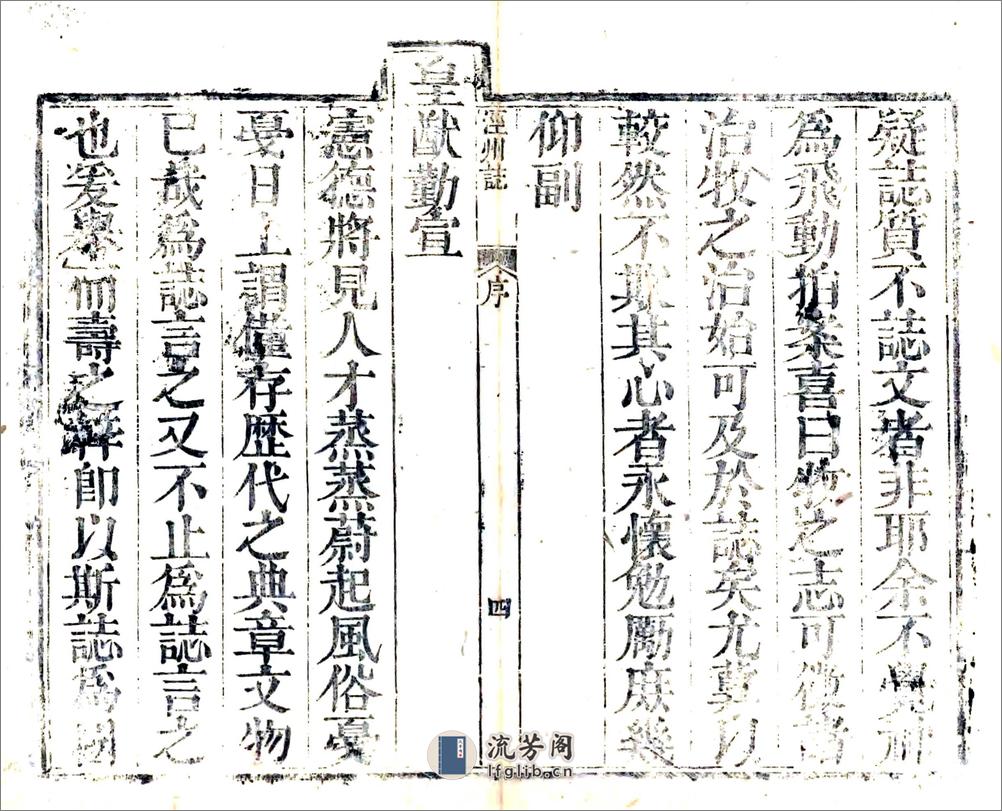 疑誌質不誌文者非耶余不覺神
爲飛動拍案喜曰牧之志可徵諸
治牧之治始可及於誌矣尤冀以
較然不欺其心者永懷勉勵庶幾
仰副
涇州誌
序
四
皇猷勤宣
憲德將見人才蒸蒸蔚起風俗戞
戞日上謂僅存歴代之典章文物
已哉爲誌言之又不止爲誌言之
也爰舉而壽之梓卽以斯誌爲國
流芳阁
lfglib.cn